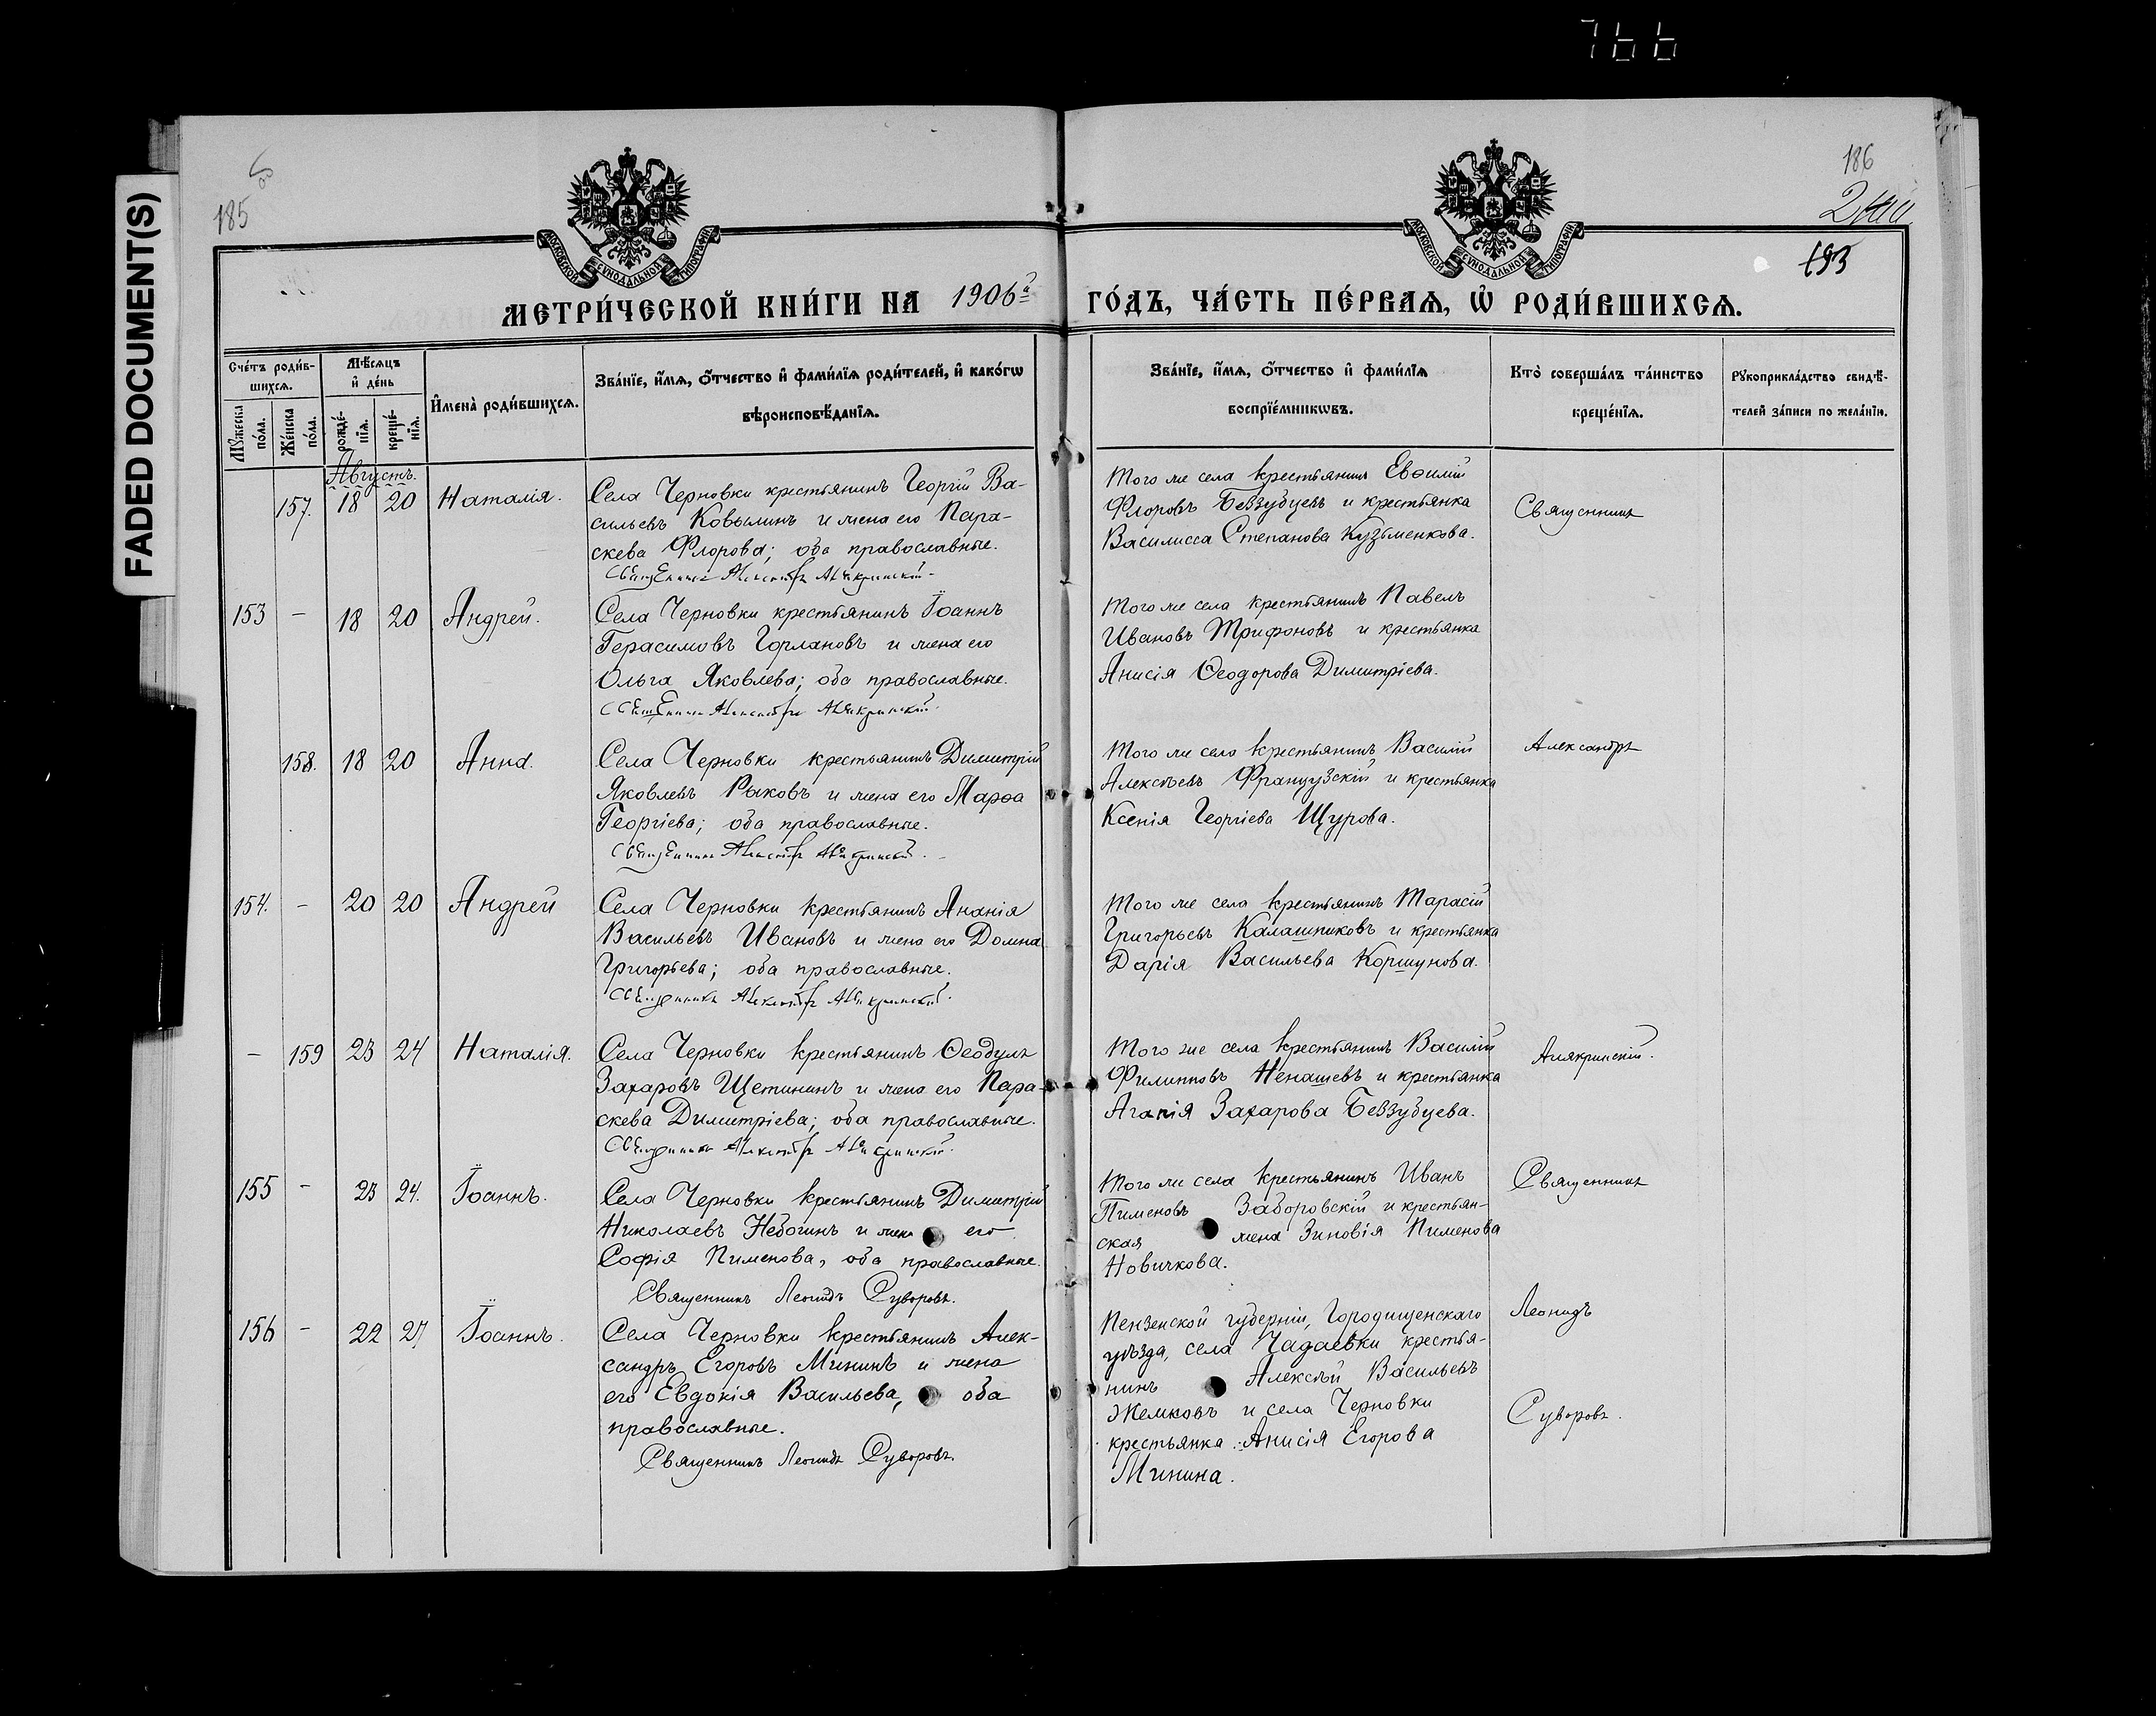 766
FADED DOCUMENT(S)
185
186
193
МОСКОВСКОЙ СУНОДАЛЬНОЙ ТИПОГРАФІИ
МОСКОВСКОЙ СУНОДАЛЬНОЙ ТИПОГРАФІИ
МЕТРИ́ЧЕСКОЙ КНИ́ГИ НА 1906й
ГО́ДЪ, ЧА́СТЬ ПЕ́РВАѦ, Ѡ҆ РОДИ́ВШИХСѦ.
Сче́тъ роди́в-
шихсѧ.
Мꙋжеска по́ла.
Же́нска по́ла.
Мѣ́сѧцъ и҆ де́нь
рожде́-нїѧ.
креще́-нїѧ.
И҆мена̀ роди́вшихсѧ.
Зва́нїе, и҆́мѧ, ѻ҆́тчество и҆ фами́лїѧ роди́телей, и҆ како́гѡ
вѣроисповѣ́данїѧ.
Зва́нїе, и҆́мѧ, ѻ҆́тчество и҆ фами́лїѧ
воспрїе́мникѡвъ.
Кто̀ соверша́лъ та́инство
креще́нїѧ.
Рꙋкоприкла́дство свидѣ́-
телей за́писи по жела́нїю.
Августъ.
157. 18 20 Наталія.
Села Черновки крестьянинъ Георгій Ва-
сильевъ Ковылинъ и жена его Пара-
скева Флорова; оба православные.
Священникъ Александръ Аллякринскій.
Того же села крестьянинъ Евѳимій
Флоровъ Беззубцевъ и крестьянка
Василисса Степанова Кузьменкова.
Священникъ
153 – 18 20 Андрей.
Села Черновки крестьянинъ Іоаннъ
Герасимовъ Горлановъ и жена его
Ольга Яковлева; оба православные.
Священникъ Александръ Аллякринскій.
Того же села крестьянинъ Павелъ
Ивановъ Трифоновъ и крестьянка
Анисія Ѳеодорова Димитріева.
158. 18 20 Анна.
Села Черновки крестьянинъ Димитрій
Яковлевъ Рыковъ и жена его Марѳа
Георгіева; оба православные.
Священникъ Александръ Аллякринскій.
Того же села крестьянинъ Василій
Алексѣевъ Французскій и крестьянка
Ксенія Георгіева Щурова.
Александръ
154. – 20 20 Андрей
Села Черновки крестьянинъ Ананія
Васильевъ Ивановъ и жена его Домна
Григорьева; оба православные.
Священникъ Александръ Аллякринскій.
Того же села крестьянинъ Тарасій
Григорьевъ Калашниковъ и крестьянка
Дарія Васильева Коршунова.
– 159 23 24 Наталія.
Села Черновки крестьянинъ Ѳеодулъ
Захаровъ Щетининъ и жена его Пара-
скева Димитріева; оба православные.
Священникъ Александръ Аллякринскій.
Того же села крестьянинъ Василій
Филипповъ Ненашевъ и крестьянка
Агапія Захарова Беззубцева.
Аллякринскій.
155 – 23 24. Іоаннъ.
Села Черновки крестьянинъ Димитрій
Николаевъ Небогинъ и жена его
Софія Пименова, оба православные.
Священникъ Леонидъ Суворовъ.
Того же села крестьянинъ Иванъ
Пименовъ Заборовскій и крестьян-
ская жена Зиновія Пименова
Новичкова.
Священникъ
156 – 22 27 Іоаннъ.
Села Черновки крестьянинъ Алек-
сандръ Егоровъ Мининъ и жена
его Евдокія Васильева, оба
православные.
Священникъ Леонидъ Суворовъ.
Пензенской губерніи, Городищенскаго
уѣзда, села Чадаевки крестья-
нинъ Алексѣй Васильевъ
Жемковъ и села Черновки
крестьянка Анисія Егорова
Минина.
Леонидъ
Суворовъ.